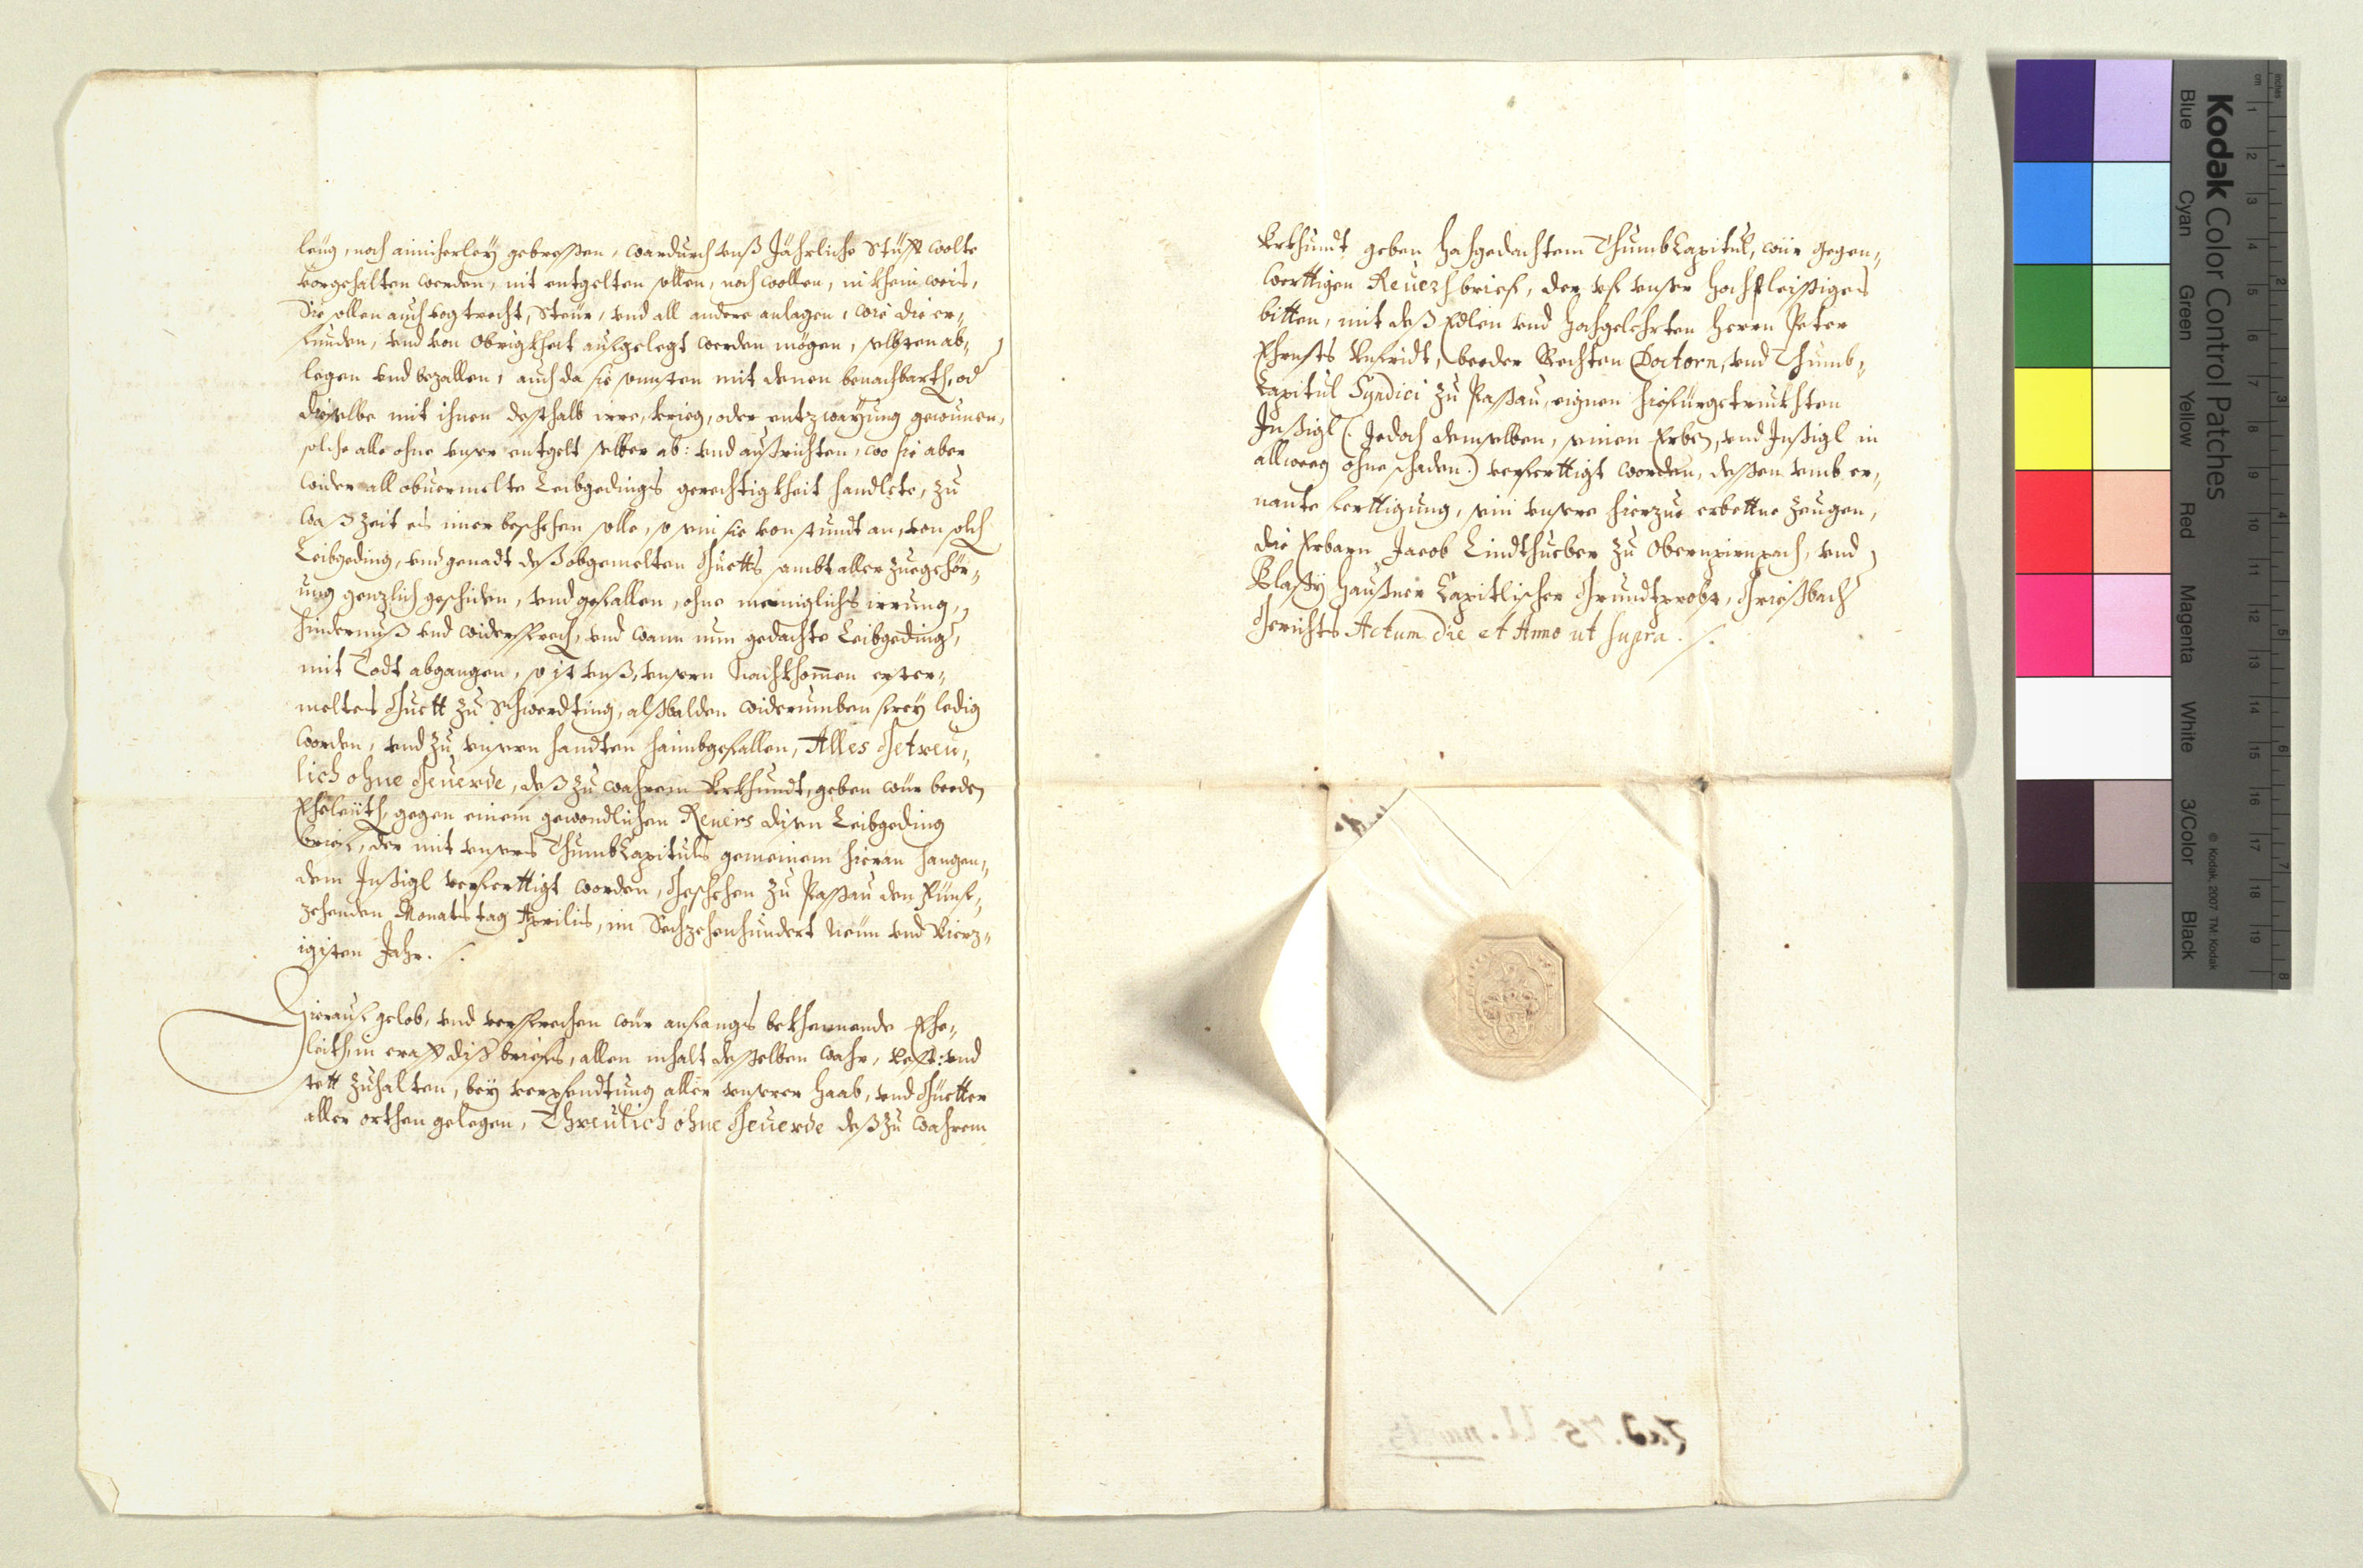 leüg, noch ainicherley gebresßen, wardurch vnß Jährliche Stüfft wolte
vorgehalten werden, nit entgelten sollen, noch wollen, in khein weis,
Sie sollen auch vogtrecht, Steür, vnd all andere anlagen, wie die er-
funden, vnd von Obrigkheit aufgelegt werden mögen, selbsten ab-
legen vnd bezallen, auch da sie sonsten mit denen benachbarth, od
dieselbe mit ihnen desthalb irre, krieg, oder entzwayung gewunnen,
solche alle ohne vnser entgelt selber ab: vnd außrichten, wo sie aber
wider all obuermelte Leibgedings gerechtigkheit handlete, zu
waß zeit es imer beschehen solle, so sein sie von stundt an, von solch
Leibgeding, vnd genadt deß obgemelten Guetts sambt aller zuegehör-
ung genzlich geschiden, vnd gefallen, ohne meniglichs irrung,
hindernuß vnd widersprech, vnd wann nun gedachte Leibgeding,
mit Todt abgangen, so ist vnß, vnsern Nachkhomen erster-
meltes Guett zu Schwerdting, alßbalden widerumben frey ledig
worden, vnd zu vnsern handten haimbgefallen, Alles Getreu-
lich ohne Geuerde, deß zu wahrem Vrkhundt, geben wür beeden
Eheleüth, gegen einem gewondlichen Reuers disen Leibgeding
brief, der mit vnsers ThumbCapituls gemeinem hieran hangen-
dem Insigl verferttigt worden, Geschehen zu Passau den Fünf-
zehenden Monatstag Aprilis, im Sechzehenhundert Neün vnd Vierz-
igisten Jahr.
Hierauf gelob, vnd versprechen wür anfangs bekhennende Ehe-
leith, in crafft diß briefs, allen inhalt desselben wahr, vest: vnd
stett zuhalten, bey verpfendtung aller vnserer Haab, vnd Güetter
aller orthen gelegen, Threulich ohne Geuerde deß zu wahrem
Vrkhundt geben hochgedachtem ThumbCapitul, wür gegen-
werttigen Reuerß brief, der vf vnser hochfleissiges
bitten, mit deß Edlen vnd hochgelehrten Herrn Peter
Ehrnsts beeder Rechten Doctorn, vnd Thumb-
Capitul Syndici zu Passau, eignen hiefürgetruckhten
Insigl (: Jedoch demselben, seinen Erben, vnd Insigl in
allweeg ohne schaden.) verferttigt worden, dessen vmb er-
nante ferttigung, sein vnsere hierzue erbettne Zeugen,
die Erbarn Jacob Lindthueber zu Obernpirnpach, vnd
Blasy Haußner Capitlischer Grundtprobst, Grießbach
Gerichts Actum die et Anno ut supra.
Kodak Color Control Patches
Blue Cyan Green Yellow Red Magenta White 3/Color Black
© Kodak, 2007 TM: Kodak
cm 1 2 3 4 5 6 7 8 9 10 11 12 13 14 15 16 17 18 19
inches 1 2 3 4 5 6 7 8